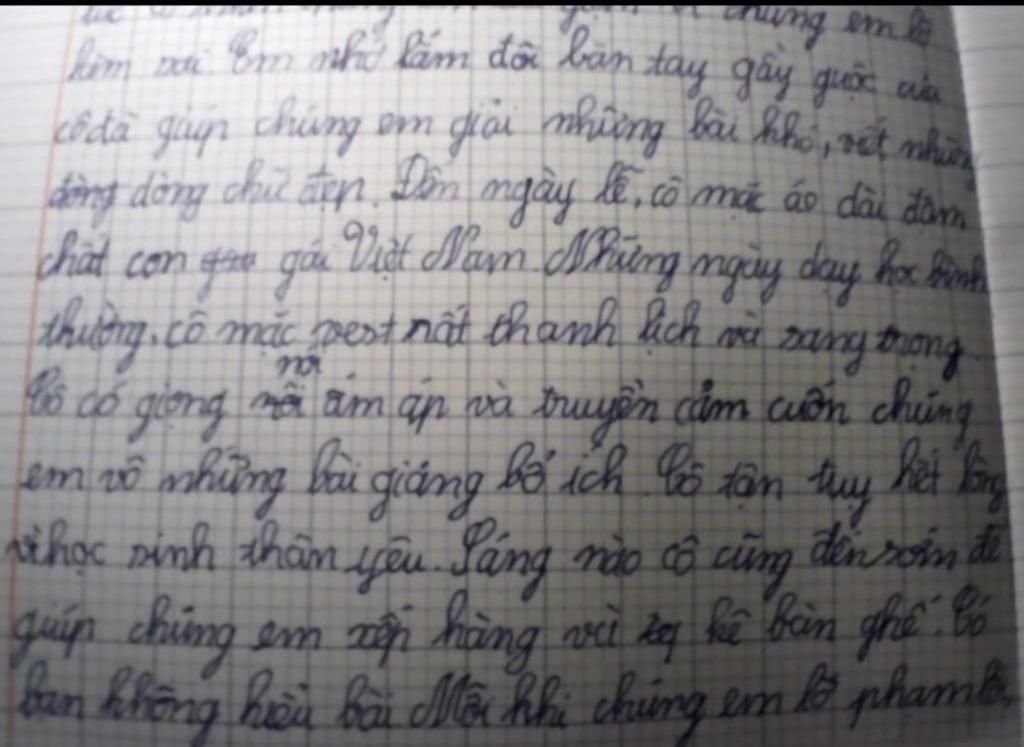 chúng em lỡ
Em nhớ lắm đôi bàn tay gầy guộc của
cô đã giúp chúng em giải những bài khó, viết những
dòng chữ đẹp. Đến ngày lễ, cô mặc áo dài đậm
chất con gái Việt Nam. Những ngày dạy học bình
thường, cô mặc vest rất thanh lịch và sang trọng.
Cô có giọng nói ấm áp và truyền cảm cuốn chúng
em vô những bài giảng bổ ích. Cô tận tuỵ hết lòng
vì học sinh thân yêu. Sáng nào cô cũng đến sớm để
giúp chúng em xếp hàng và kê bàn ghế. Có
bạn không hiểu bài Mỗi khi chúng em lỡ phạm lỗi,